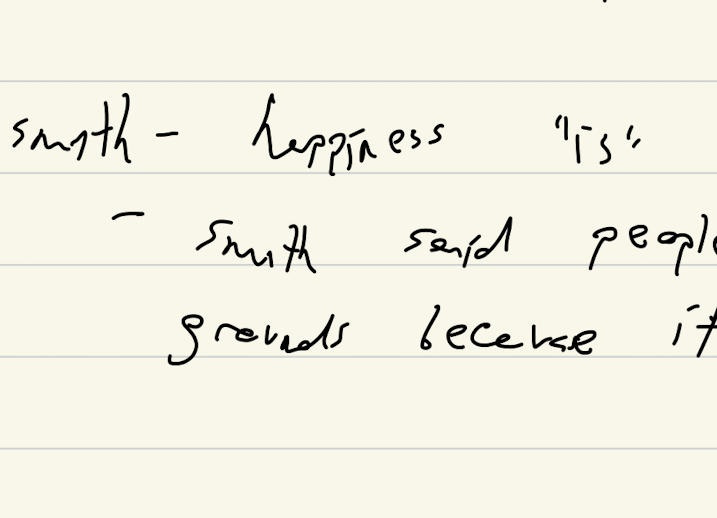 smith - happiness "is"
- smith said people
grounds because it